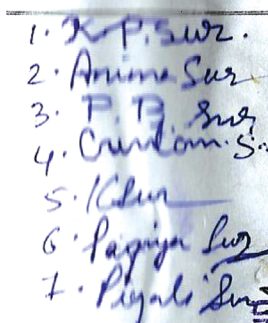 1. K.P. Sur.
2. Anima Sur
3. P. B. Sur
4. S.
5. K Sur
6. Papiya Sur
7. Piyali Sur